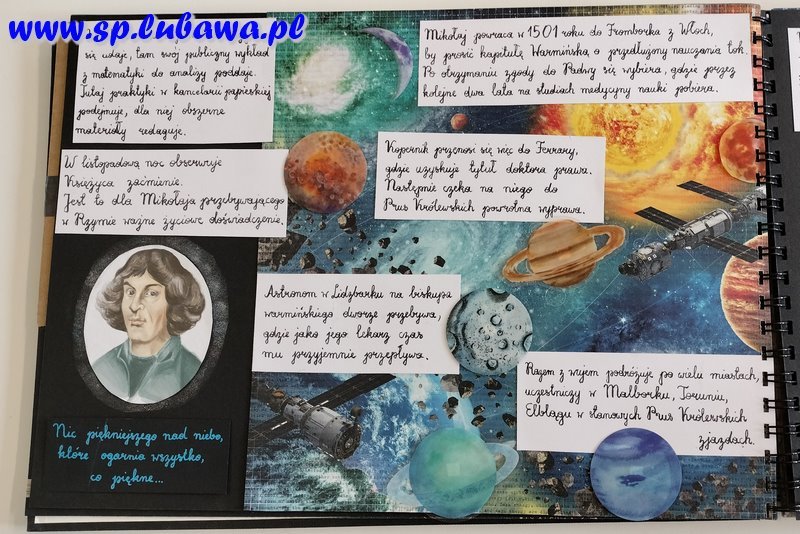 www.sp.lubawa.pl
się udaje, tam swój publiczny wykład
z matematyki do analizy poddaje.
Tutaj praktyki w kancelarii papieskiej
podejmuje, dla niej obszerne
materiały redaguje.
W listopadową noc obserwuje
Księżyca zaćmienie.
Jest to dla Mikołaja przebywającego
w Rzymie ważne życiowe doświadczenie.
Nic piękniejszego nad niebo,
które ogarnia wszystko,
co piękne...
Mikołaj powraca w 1501 roku do Fromborka z Włoch,
by prosić kapitułę Warmińską o przedłużony nauczania tok.
Po otrzymaniu zgody do Padwy się wybiera, gdzie przez
kolejne dwa lata na studiach medycyny nauki pobiera.
Kopernik przenosi się więc do Ferrary,
gdzie uzyskuje tytuł doktora prawa.
Następnie czeka na niego do
Prus Królewskich powrotna wyprawa.
Astronom w Lidzbarku na biskupa
warmińskiego dworze przebywa,
gdzie jako jego lekarz czas
mu przyjemnie przepływa.
Razem z wujem podróżuje po wielu miastach,
uczestniczy w Malborku, Toruniu,
Elblągu w stanowych Prus Królewskich
zjazdach.